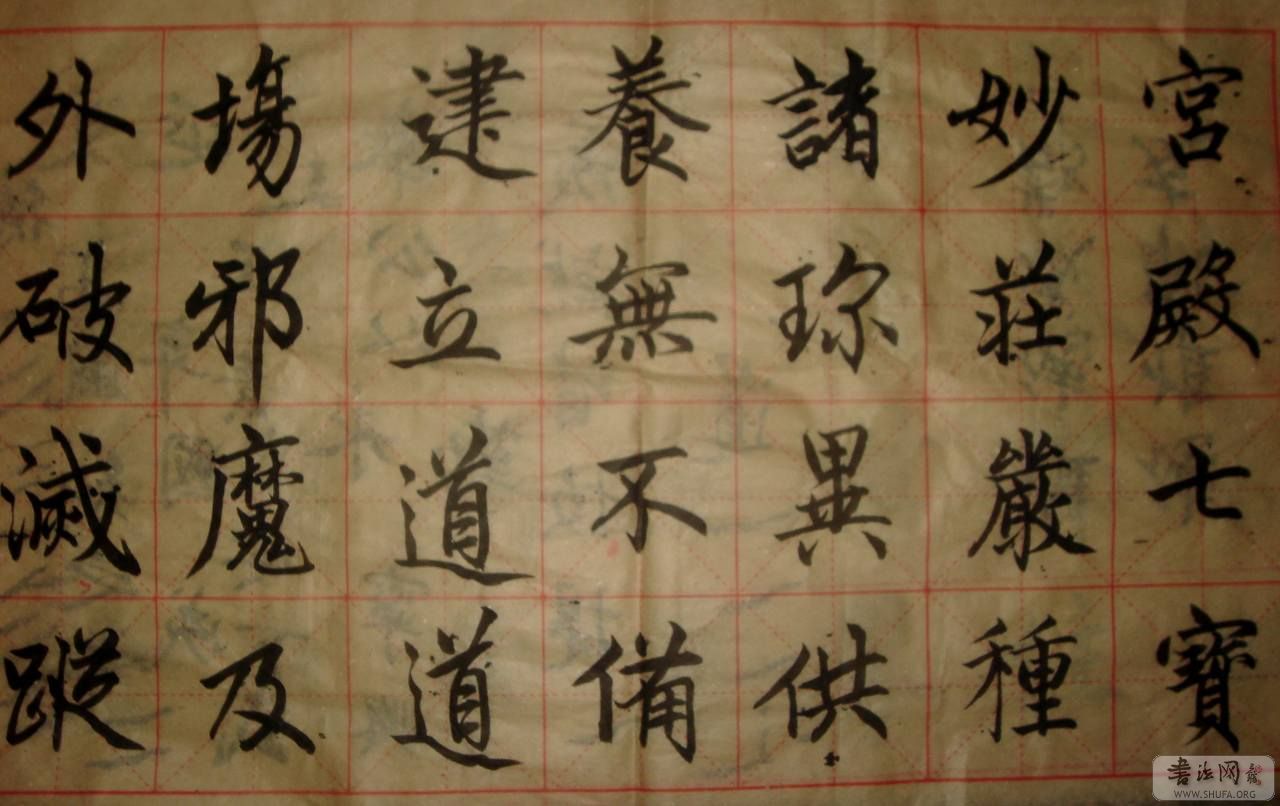 宮殿七寶
妙莊嚴種
諸珎異供
養無不備
建立道道
場邪魔及
外破滅蹤
書法网
WWW.SHUFA.ORG